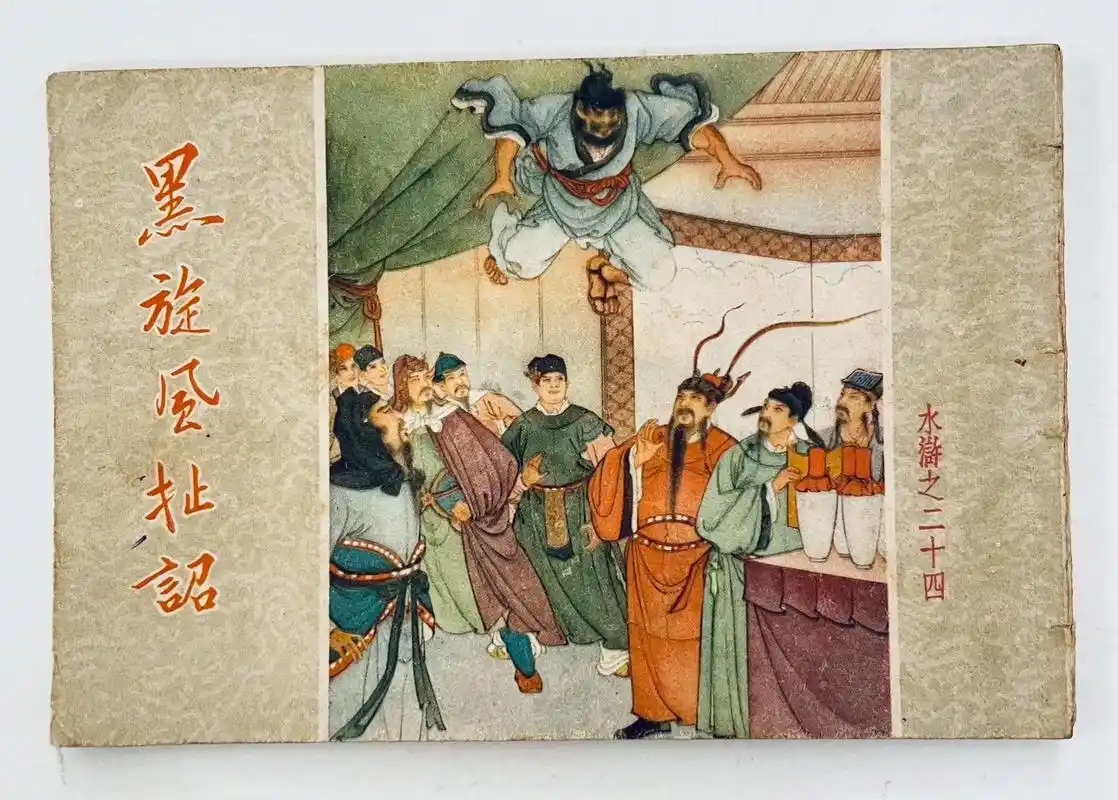 黑旋风扯詔
水滸之二十四